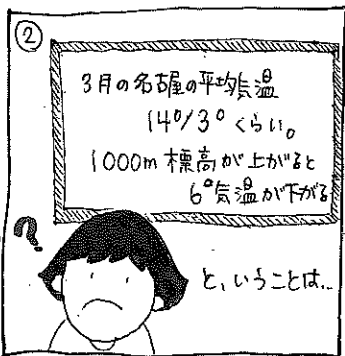 ②
3月の名古屋の平均気温
14°/3°くらい。
1000m 標高が上がると
6°気温が下がる
?
と、いうことは...